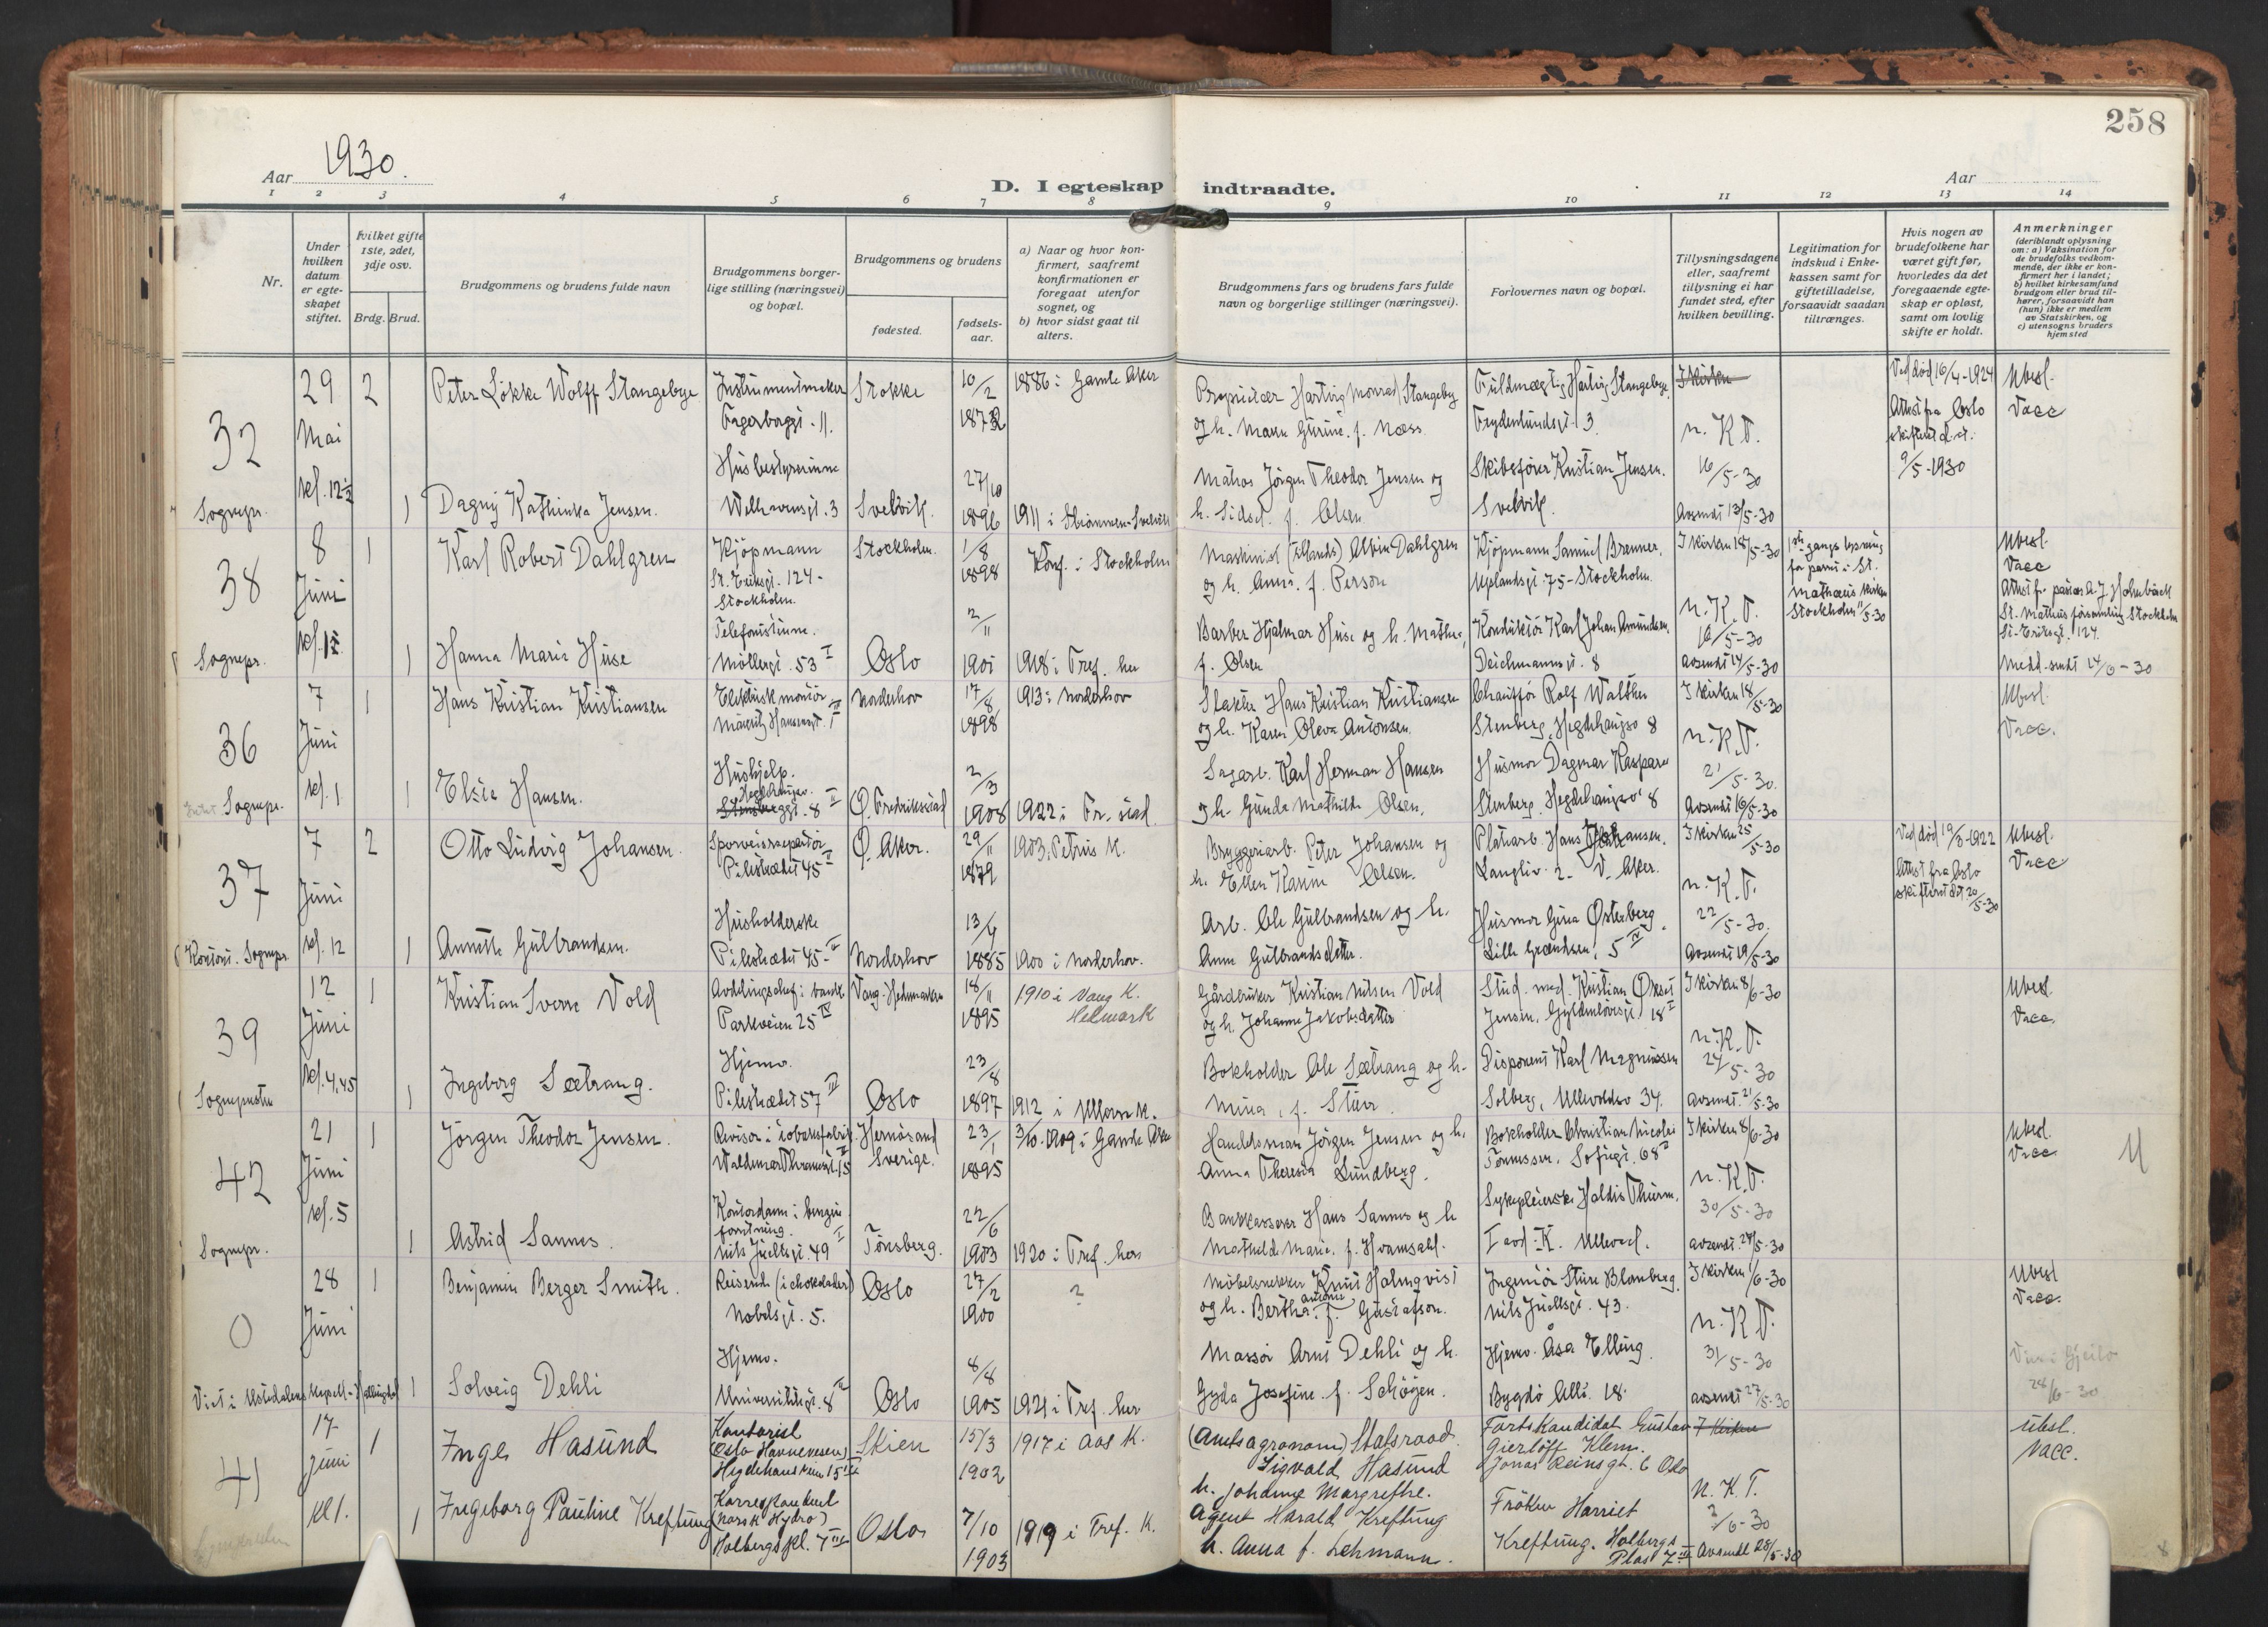 258
Aar 1930.
D. I egteskap indtraadte.
Aar
1 2 3 4 5 6 7 8 9 10 11 12 13 14
Nr.
Under hvilken datum er egteskapet stiftet.
Hvilket gifte 1ste, 2det, 3dje osv.
Brdg. Brud.
Brudgommens og brudens fulde navn
Brudgommens borgerlige stilling (næringsvei) og bopæl.
Brudgommens og brudens
fødested.
fødselsaar.
a) Naar og hvor konfirmert, saafremt konfirmationen er foregaat utenfor sognet, og
b) hvor sidst gaat til alters.
Brudgommens fars og brudens fars fulde navn og borgerlige stillinger (næringsvei).
Forlovernes navn og bopæl.
Tillysningsdagene eller, saafremt tillysning ei har fundet sted, efter hvilken bevilling.
Legitimation for indskud i Enkekassen samt for giftetilladelse, forsaavidt saadan tiltrænges.
Hvis nogen av brudefolkene har været gift før, hvorledes da det foregaaende egteskap er opløst, samt om lovlig skifte er holdt.
Anmerkninger (deriblandt oplysning om: a) Vaksination for de brudefolks vedkommende, der ikke er konfirmert her i landet; b) hvilket kirkesamfund brudgom eller brud tilhører, forsaavidt han (hun) ikke er medlem av Statskirken, og c) utensogns bruders hjemsted
32
29 Mai kl. 12½
Sognepr.
2 Peter Løkke Wolff Stangebye
Instrumentmaker
Fagerborggt. 11.
Stokke
10/2
1886 i Gamle Aker
Proprietær Hartvig Monrad Stangeby
og h. Maren Gurine. f. Næss
Fuldmægtig Hartvig Stangebye
Frydenlundsgt. 3
I kirken
n. K. T.
16/5-30
Avsendt 13/5-30
Ved død 16/4-1924
Attest fra Oslo
skifteret d.d.
9/5-1930
Ubesl.
Vacc
1 Dagny Kathinka Jensen.
Husbestyrerinne
Welhavensgt. 3
Svelvik.
27/10
1896
1911 i Strømmen-Svelvik
Matros Jørgen Theodor Jensen og
h. Sidsel. f. Olsen
Skibsfører Kristian Jensen.
Svelvik.
38
8 Juni
Sognepr.
1 Karl Robert Dahlgren
Kjøpmann
St. Eriksgt. 124-
Stockholm.
Stockholm.
1/8
1898
Konf. i Stockholm
Maskinist Albin Dahlgren
og h. Anna. f. Person
Kjøpmann Samuel Brenner.
Uplandsgt. 75-Stockholm.
I kirken 18/5-30
n. K. T.
16/5-30
avsendt 14/5-30
1ste gangs lysning
for parret i St.
Mathæus kirke
Stockholm 11/5-30
Ubesl.
Vacc
St. Matheus församling Stockholm
St. Eriksgt. 124.
Medd. sendt 24/6-30
1 Hanna Marie Huse
Telefonistinne.
Møllergt. 53 I
Oslo
2/11
1901
1918 i Tref. her
Barber Hjalmar Huse og h. Mathe,
f. Olsen
Konduktør Karl Johan Amundsen.
Deichmannsgt. 8
36
7 Juni kl. 1
Sognepr.
1 Hans Kristian Kristiansen
Elektrisk montør
Mauritz Hansensgt. 1
Norderhov
17/8
1898
1913 i Norderhov
Hans Kristian Kristiansen
og h. Karen Oleva Antonsen.
Chauffør Rolf Walther
Stenberg, Hegdehaugsv 8
I kirken 18/5-30
n. K. T.
21/5-30.
Avsendt 16/5-30
Ubesl.
Vacc.
1 Elsie Hansen.
Hushjelp.
Hegdehaugsv.
8 II
Ø. Fredriksstad
2/3
1908
1922 i Fr. stad.
Sagarb. Karl Herman Hansen
og h. Gunda Mathilde Olsen.
Husmor Dagmar Kaspara
Stenberg, Hegdehaugsv 8
37
7 Juni kl. 12
Sognepr.
2 Otto Ludvig Johansen.
Sporveisreparatør
Pilestrædet 45 II
Ø. Aker.
29/11
1879
1903. Petrus K.
Bryggeriarb. Peter Johansen og
h. Ellen Karine Olsen.
Platearb. Hans Johansen.
Langliv. 2- V. Aker.
I kirken 25/5-30
n. K. T.
22/5-30.
Avsendt 19/5-30
Ved død 19/3-1922
Attest fra Oslo
skifteret dat 20/5-30
Ubesl.
Vacc
1 Annette Gulbrandsen.
Husholderske
Pilestrædet 45 II
Norderhov
13/4
1885
1900 i Norderhov.
Arb. Ole Gulbrandsen og h.
Anne Gulbrandsdatter.
Husmor Gina Østerberg.
Lille Grændsen. 5 IV
39
12 Juni kl. 4.45
1 Kristian Sverre Vold
Avdelingschef i bank
Parkveien 25 IV
Vang-Hedmarken
18/11
1895
1910 i Vang K.
Hedmark
Gårdbruker Kristian Nilsen Vold
og h. Johanne Jakobsdatter
Stud. med. Kristian
Jensen. Gyldenløvesgt 18 I
I kirken 8/6-30
n. K. T.
24/5-30
Avsendt. 21/5-30
Ubesl.
Vacc.
1 Ingeborg Sætrang.
Hjemv.
Pilestrædet 57 III
Oslo
23/8
1897
1912 i Ullern K.
Bokholder Ole Sætrang og h.
Mina, f. Stuer
Disponent Karl Magnussen
Solberg, Ullevoldsv 34.
42
21 Juni kl. 5
Sognepr.
1 Jørgen Theodor Jensen.
Revisor i tobaksfabrik
Waldemar Thranesgt. 15
Hernösand
Sverige.
23/1
1895
3/10. 1909 i Gamle Aker
Handelsman Jørgen Jensen og h.
Anna Theresia Lundberg.
Bokholder Christian Nicolai
Tønnessen, Sofiegt. 68 II
I kirken 8/6-30
n. K. T.
30/5-30
avsendt. 24/5-30
Ubesl.
Vacc
1 Astrid Sannes.
Kontordame i bensin
forretning.
Nils Juelsgt. 49 I
Tønsberg.
22/6
1903
1920 i Tref. her
Bankkasserer Hans Sannes og h
Mathilde Marie. f. Hvamsahl.
Sykepleierske Haldis Thurm.
0
28 Juni
Viet i Ustedalens kapell-Hallingdal
1 Benjamin Berger Smith.
Reisende (i chokolader)
Nobelsgt. 5.
Oslo
27/2
1900
?
Møbelsnekker Knut Holmqvist
og h. Bertha Antonie f. Gustafson.
Ingeniør Sture Blomberg
Nils Juelsgt. 43.
I kirken 1/6-30
n. K. T.
31/5-30
avsendt 27/5-30
Ubesl
Vacc.
Viet i Geilo
28/6-30
1 Solveig Dehli
Hjemv.
Universitetsgt. 8 II
Oslo
8/8
1905
1921 i Tref. her
Massør Arnt Dehli og h.
Gyda Josefine. f. Schøyen.
Hjemv. Åsa Elling
Bygdø Allé. 18.
41
17 juni kl 1.
1 Inge Hasund
Kontorist
(Oslo Havnevesen)
Hegdehausveien 15 II
Skien
15/3
1902
1917 i Aas K.
(Amtsagronom) Statsraad
Sigvald Hasund
h. Johanne Margrethe.
Forstkandidat Gustav
Gierløff Klem.
Jonas Reinsgt. 6 Oslo
I kirken
N. K. T.
2/6-30
Avsendt 28/5-30
Ubesl.
Vacc.
1 Ingeborg Pauline Kreftung
Korrespondent
(Norsk Hydro)
Holbergs pl. 7 III
Oslo
7/10
1903
1919 i Tref. K.
Agent Harald Kreftung
h. Anna f. Lehmann.
Frøken Harriet
Kreftung. Holbergs
Plass 7 III